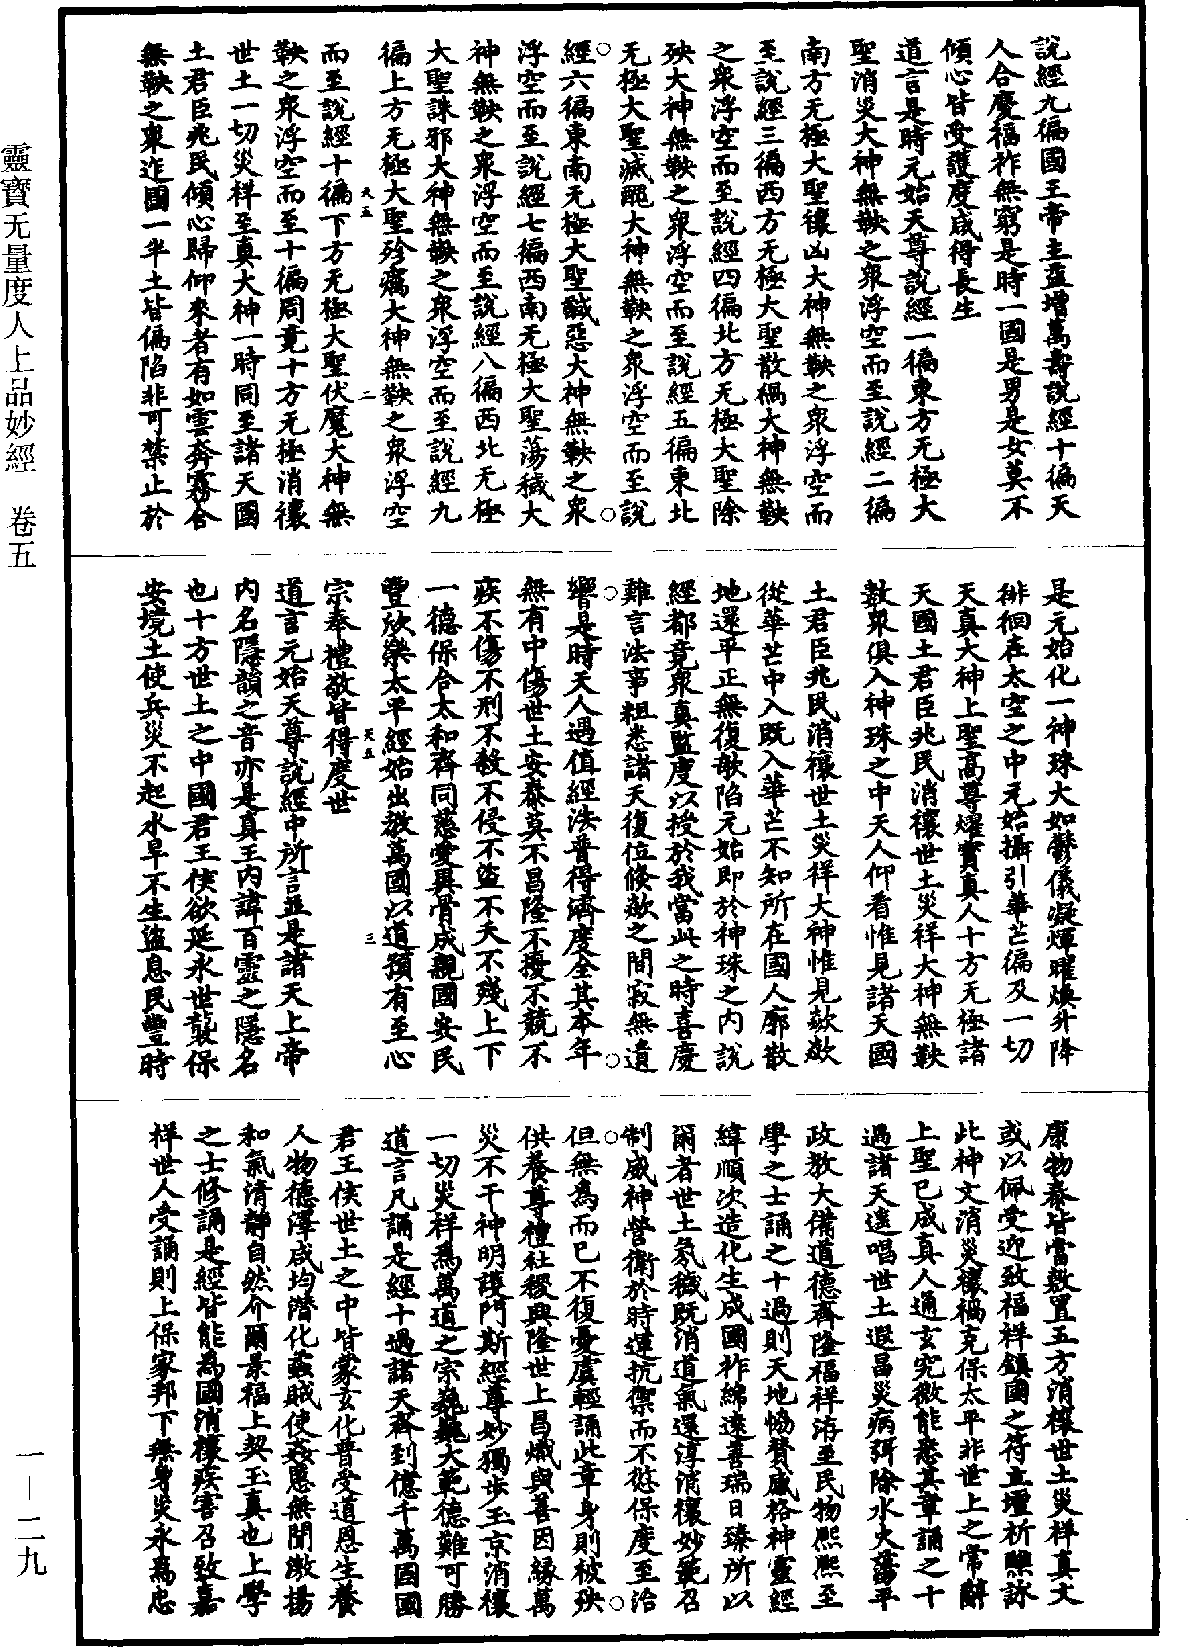 說經九徧國王帝主益增萬壽說經十徧天
人合慶福祚無窮是時一國是男是女莫不
傾心皆受護度咸得長生
道言是時元始天尊說經一徧東方无極大
聖消災大神無鞅之衆浮空而至說經二徧
南方无極大聖禳凶大神無鞅之衆浮空而
至說經三徧西方无極大聖散禍大神無鞅
之衆浮空而至說經四徧北方无極大聖除
殃大神無鞅之衆浮空而至說經五徧東北
无極大聖滅醜大神無鞅之衆浮空而至說
經六徧東南无極大聖馘惡大神無鞅之衆
浮空而至說經七徧西南无極大聖蕩穢大
神無鞅之衆浮空而至說經八徧西北无極
大聖誅邪大神無鞅之衆浮空而至說經九
徧上方无極大聖殄癘大神無鞅之衆浮空
天五 二
而至說經十徧下方无極大聖伏魔大神無
鞅之衆浮空而至十徧周竟十方无極消禳
世土一切災祥至真大神一時同至諸天國
土君臣兆民傾心歸仰來者有如雲奔霧合
無鞅之衆迮國一半土皆偏陷非可禁止於
是元始化一神珠大如鬱儀凝輝曜煥升降
徘徊在太空之中元始攝引華芒徧及一切
天真大神上聖高尊耀寶真人十方无極諸
天國土君臣兆民消禳世土災祥大神無鞅
數衆俱入神珠之中天人仰看惟見諸天國
土君臣兆民消禳世土災祥大神惟見欻欻
從華芒中入既入華芒不知所在國人廓散
地還平正無復欹陷元始即於神珠之內說
經都竟衆真監度以授於我當此之時喜慶
難言法事粗悉諸天復位倏欻之間寂無遺
響是時天人遇值經法普得濟度全其本年
無有中傷世土安泰莫不昌隆不擾不競不
疾不傷不刑不殺不侵不盜不夭不殘上下
一德保合太和齊同慈愛異骨成親國安民
豐欣樂太平經始出教萬國以道預有至心
天五 三
宗奉禮敬皆得度世
道言元始天尊說經中所言並是諸天上帝
內名隱韻之音亦是真王內諱百靈之隱名
也十方世土之中國君王侯欲延永世襲保
安境土使兵災不起水旱不生盜息民豐時
康物泰皆當敷置五方消禳世土災祥真文
或以佩受迎致福祥鎮國之符立壇祈醮詠
此神文消災禳禍克保太平非世上之常辭
上聖已成真人通玄究微能悉其章誦之十
過諸天遠唱世土遐昌災病弭除水火蕩平
政教大備道德齊隆福祥洊至民物熙熙至
學之士誦之十過則天地恊贊感格神靈經
緯順次造化生成國祚綿遠善瑞日臻所以
爾者世土氛穢既消道氣還淳消禳妙範召
制威神營衛於時運抗禦而不愆保度至治
但無為而已不復憂虞輕誦此章身則被殃
供養尊禮社稷興隆世上昌熾與善因緣萬
災不干神明護門斯經尊妙獨步玉京消禳
一切災祥為萬道之宗巍巍大範德難可勝
道言凡誦是經十過諸天齊到億千萬國國
君王侯世土之中皆蒙玄化普受道恩生養
人物德澤咸均潛化蟊賊使姦慝無聞激揚
和氣清靜自然介爾景福上契玉真也上學
之士修誦是經皆能為國消禳疾害召致嘉
祥世人受誦則上保家邦下無身災永為忠
靈寶无量度人上品妙經 卷五
一—二九